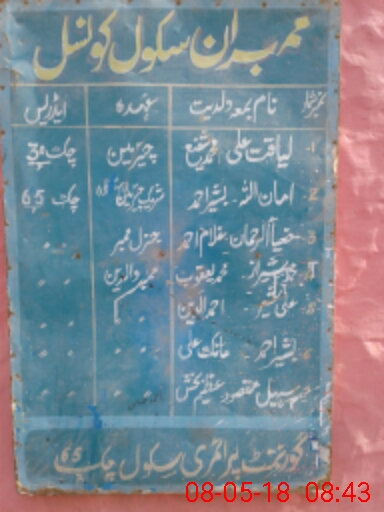 ممبران سکول کونسل
نمبر شمار نام بمعہ ولدیت عہدہ ایڈریس
1 لیاقت علی محمد شفیع چیئرمین چک
2 امان اللہ ۔ بشیر احمد شریک چیئرمین چک 65
3 ضیاءالرحمان ۔ غلام احمد جنرل ممبر 〃 〃
4 محمد یعقوب ممبر والدین 〃 〃
5 علی احمد الدین 〃 〃
6 بشیر احمد ۔ علی 〃 〃 〃 〃
سہیل مقصود عظیم بخش 〃 〃
گورنمنٹ پرائمری سکول چک 65
08-05-18 08:43